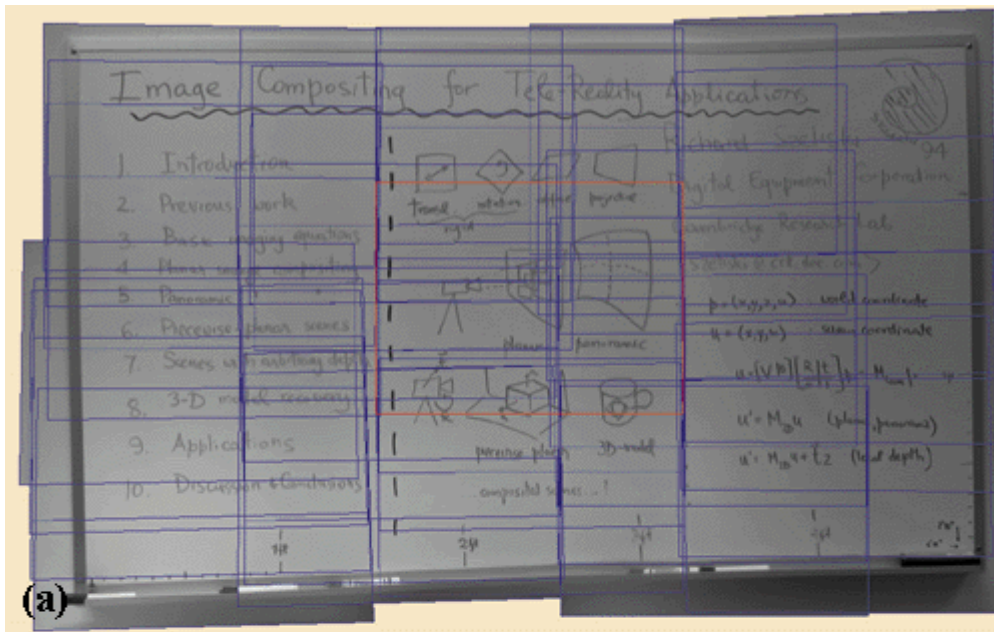 Image Compositing for Tele-Reality Applications
1. Introduction
2. Previous work
3. Basic imaging equations
4. Planar image compositing
5. Panoramic
6. Piecewise-planar scenes
7. Scenes with arbitrary depth
8. 3-D model recovery
9. Applications
10. Discussion & Conclusions
transl rotation affine projective
rigid
planar panoramic
piecewise planar 3D-model
composited scenes...!
Richard Szeliski
94
Digital Equipment Corporation
Cambridge Research Lab
p = (x,y,z,w) world coordinate
u = (x,y,w) screen coordinate
(local depth)
1ft 2ft 3ft 4ft
(a)